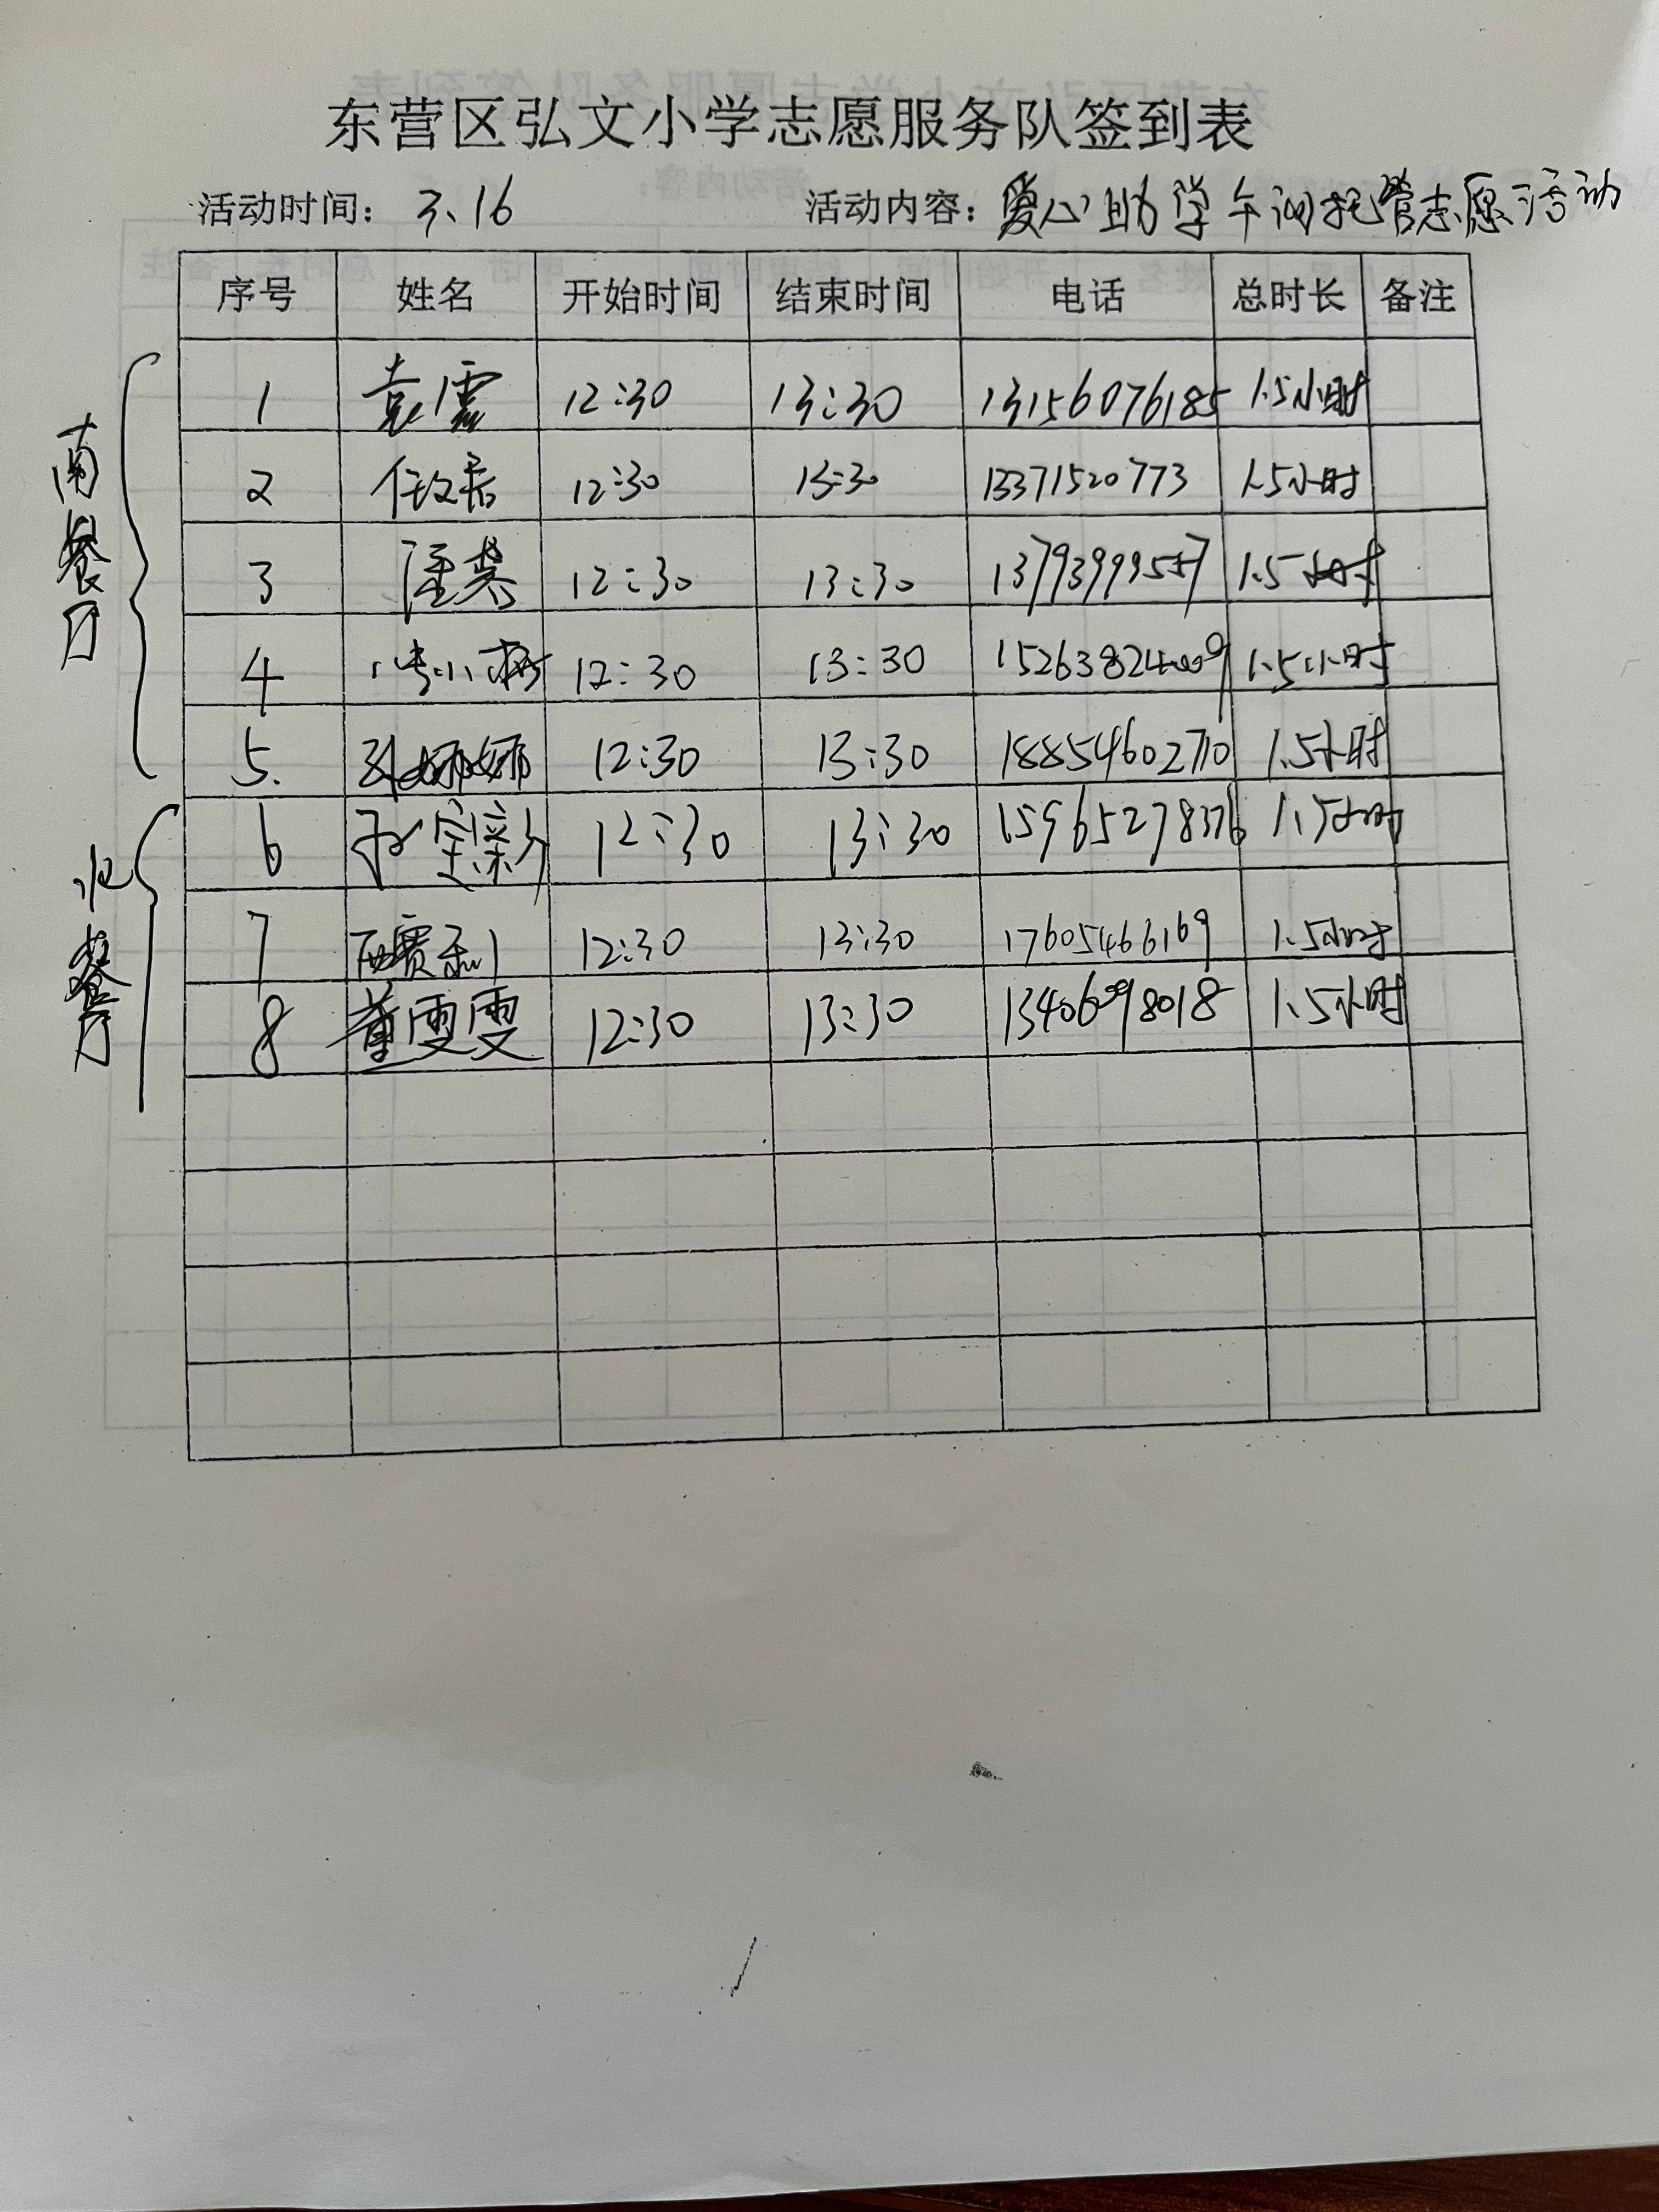 东营区弘文小学志愿服务队签到表
活动时间：3、16 活动内容：爱心助学午间托管志愿活动
序号 姓名 开始时间 结束时间 电话 总时长 备注
南餐厅
1 袁雪 12:30 13:30 13156076185 1.5小时
2 12:30 13:30 13371520773 1.5小时
3 12:30 13:30 13793999557 1.5小时
4 12:30 13:30 1.5小时
5. 孙娜娜 12:30 13:30 18854602710 1.5小时
北餐厅
6 12:30 13:30 15965278376 1.5小时
7 12:30 13:30 17605466169 1.5小时
8 董雯雯 12:30 13:30 13406098018 1.5小时